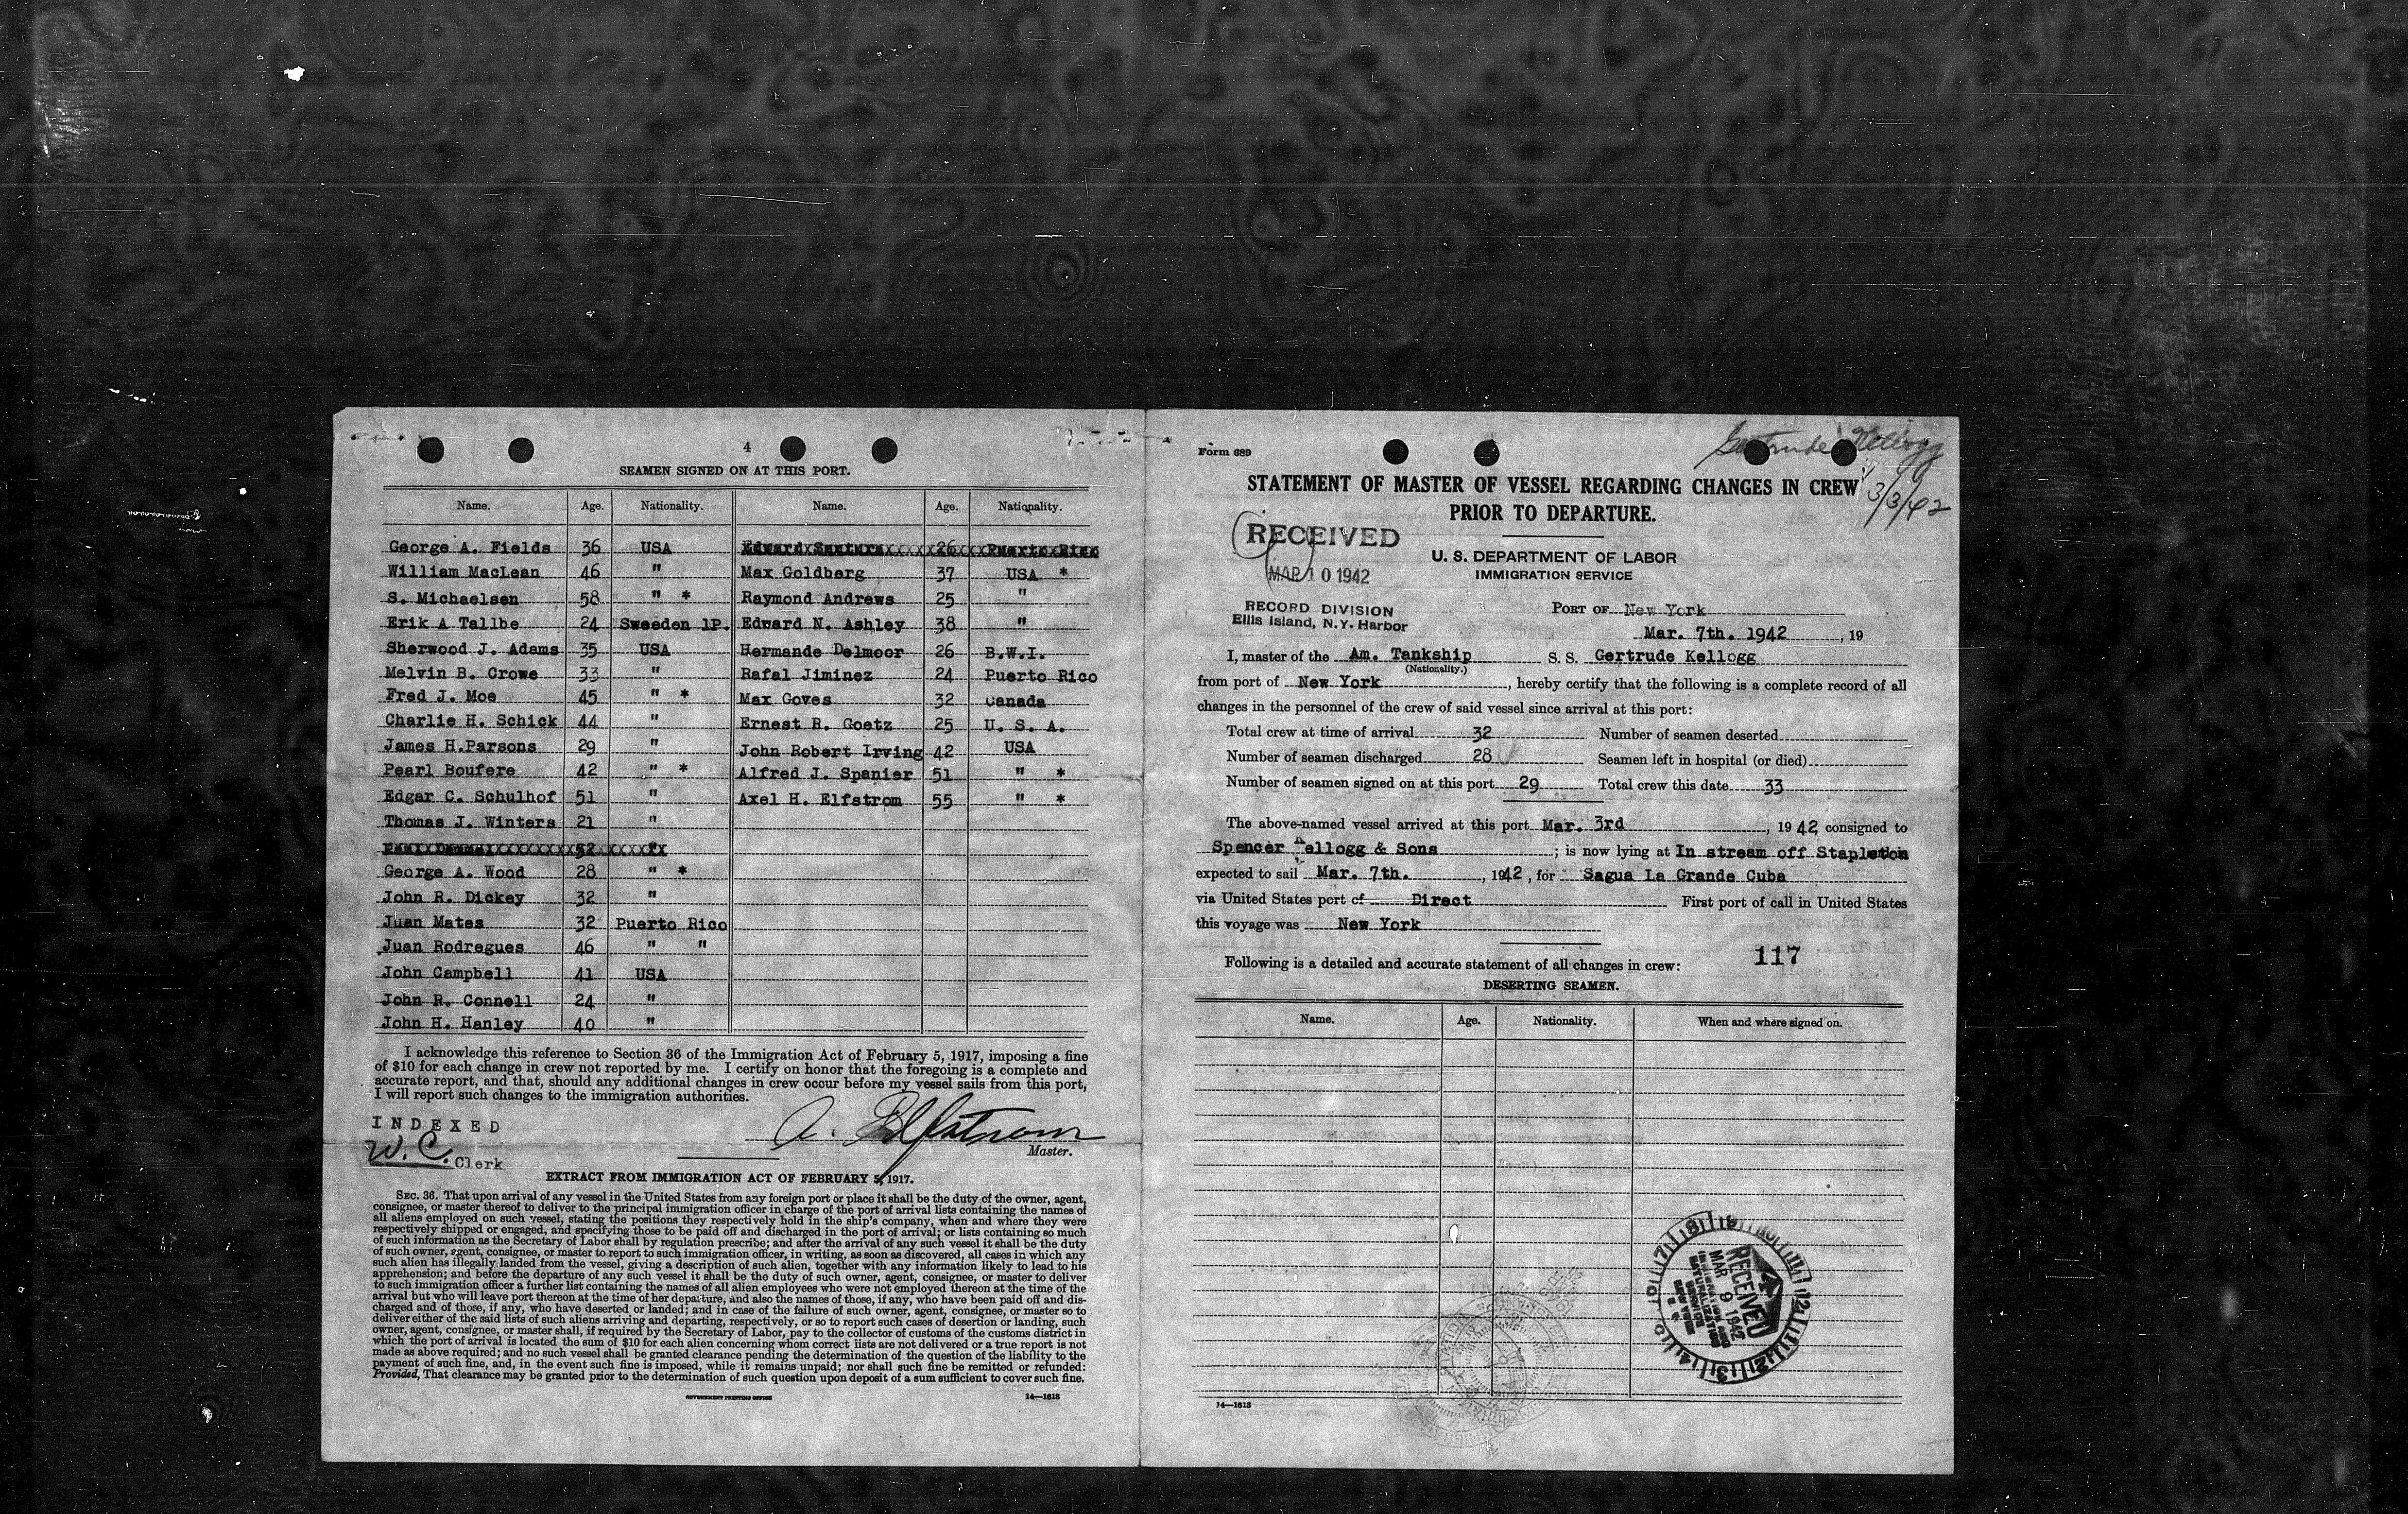 4
SEAMEN SIGNED ON AT THIS PORT.
Name. Age. Nationality. Name. Age. Nationality.
George A. Fields 36 USA Edward 26 Puerto Rico
William MacLean 46 " Max Goldberg 37 USA *
S. Michaelsen 58 " * Raymond Andrews 25 "
Erik A Tallbe 24 Sweeden 1P. Edward N. Ashley 38 "
Sherwood J. Adams 35 USA Hermande Delmoor 26 B.W.I.
Melvin B. Crowe 33 " Rafal Jiminez 24 Puerto Rico
Fred J. Moe 45 " * Max Goves 32 Canada
Charlie H. Schick 44 " Ernest R. Goetz 25 U. S. A.
James H.Parsons 29 " John Robert Irving 42 USA
Pearl Boufere 42 " * Alfred J. Spanier 51 " *
Edgar C. Schulhof 51 " Axel H. Elfstrom 55 " *
Thomas J. Winters 21 "
52
George A. Wood 28 " *
John R. Dickey 32 "
Juan Mates 32 Puerto Rico
Juan Rodregues 46 " "
John Campbell 41 USA
John R. Connell 24 "
John H. Hanley 40 "
I acknowledge this reference to Section 36 of the Immigration Act of February 5, 1917, imposing a fine
of $10 for each change in crew not reported by me. I certify on honor that the foregoing is a complete and
accurate report, and that, should any additional changes in crew occur before my vessel sails from this port,
I will report such changes to the immigration authorities.
INDEXED
W. C. Clerk
A. Elfstrom
Master.
EXTRACT FROM IMMIGRATION ACT OF FEBRUARY 5, 1917.
SEC. 36. That upon arrival of any vessel in the United States from any foreign port or place it shall be the duty of the owner, agent,
consignee, or master thereof to deliver to the principal immigration officer in charge of the port of arrival lists containing the names of
all aliens employed on such vessel, stating the positions they respectively hold in the ship's company, when and where they were
respectively shipped or engaged, and specifying those to be paid off and discharged in the port of arrival; or lists containing so much
of such information as the Secretary of Labor shall by regulation prescribe; and after the arrival of any such vessel it shall be the duty
of such owner, agent, consignee, or master to report to such immigration officer, in writing, as soon as discovered, all cases in which any
such alien has illegally landed from the vessel, giving a description of such alien, together with any information likely to lead to his
apprehension; and before the departure of any such vessel it shall be the duty of such owner, agent, consignee, or master to deliver
to such immigration officer a further list containing the names of all alien employees who were not employed thereon at the time of the
arrival but who will leave port thereon at the time of her departure, and also the names of those, if any, who have been paid off and dis-
charged and of those, if any, who have deserted or landed; and in case of the failure of such owner, agent, consignee, or master so to
deliver either of the said lists of such aliens arriving and departing, respectively, or so to report such cases of desertion or landing, such
owner, agent, consignee, or master shall, if required by the Secretary of Labor, pay to the collector of customs of the customs district in
which the port of arrival is located the sum of $10 for each alien concerning whom correct lists are not delivered or a true report is not
made as above required; and no such vessel shall be granted clearance pending the determination of the question of the liability to the
payment of such fine, and, in the event such fine is imposed, while it remains unpaid; nor shall such fine be remitted or refunded:
Provided, That clearance may be granted prior to the determination of such question upon deposit of a sum sufficient to cover such fine.
GOVERNMENT PRINTING OFFICE 14—1613
Form 689
Gertrude Kellogg
3/3/42
STATEMENT OF MASTER OF VESSEL REGARDING CHANGES IN CREW
PRIOR TO DEPARTURE.
RECEIVED
MAR 10 1942
RECORD DIVISION
Ellis Island, N.Y. Harbor
U. S. DEPARTMENT OF LABOR
IMMIGRATION SERVICE
PORT OF New York
Mar. 7th. 1942, 19
I, master of the Am. Tankship S. S. Gertrude Kellogg
(Nationality.)
from port of New York, hereby certify that the following is a complete record of all
changes in the personnel of the crew of said vessel since arrival at this port:
Total crew at time of arrival 32 Number of seamen deserted
Number of seamen discharged 28 Seamen left in hospital (or died)
Number of seamen signed on at this port 29 Total crew this date 33
The above-named vessel arrived at this port Mar. 3rd, 1942 consigned to
Spencer Kellogg & Sons; is now lying at In stream off Stapleton
expected to sail Mar. 7th., 1942, for Sagua La Grande Cuba
via United States port of Direct First port of call in United States
this voyage was New York
117
Following is a detailed and accurate statement of all changes in crew:
DESERTING SEAMEN.
Name. Age. Nationality. When and where signed on.
RECEIVED
MAR 9 1942
IMMIGRATION AND
NATURALIZATION
SERVICE
NEW YORK
14—1613